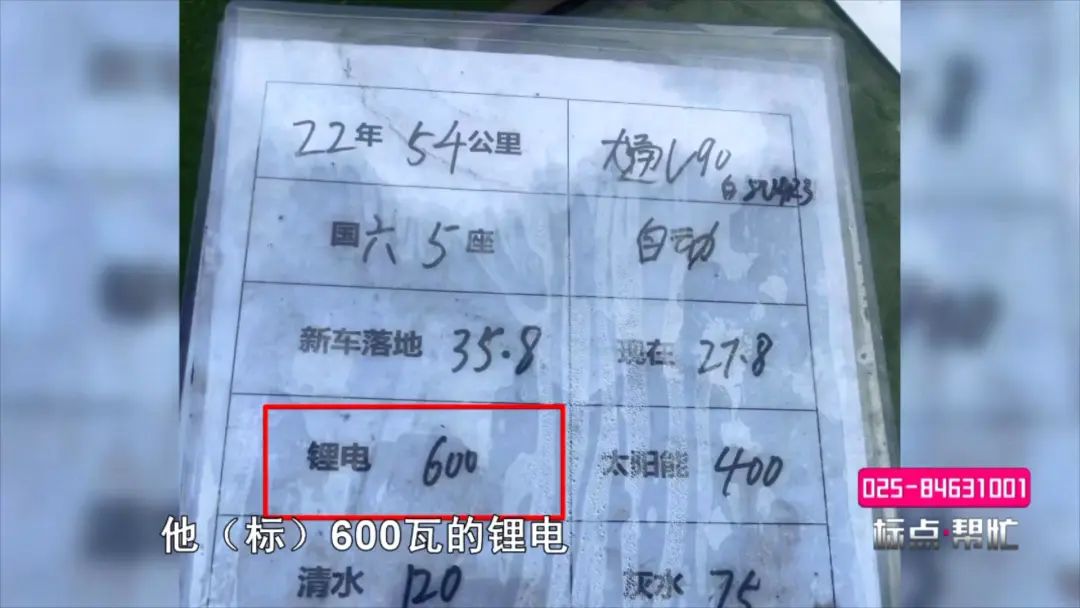 22年 54公里
大通V90
国六 5座
自动
新车落地 35.8
现在 27.8
锂电 600
太阳能 400
025-84631001
标点·帮忙
他（标）600瓦的锂电
清水 120
灰水 75